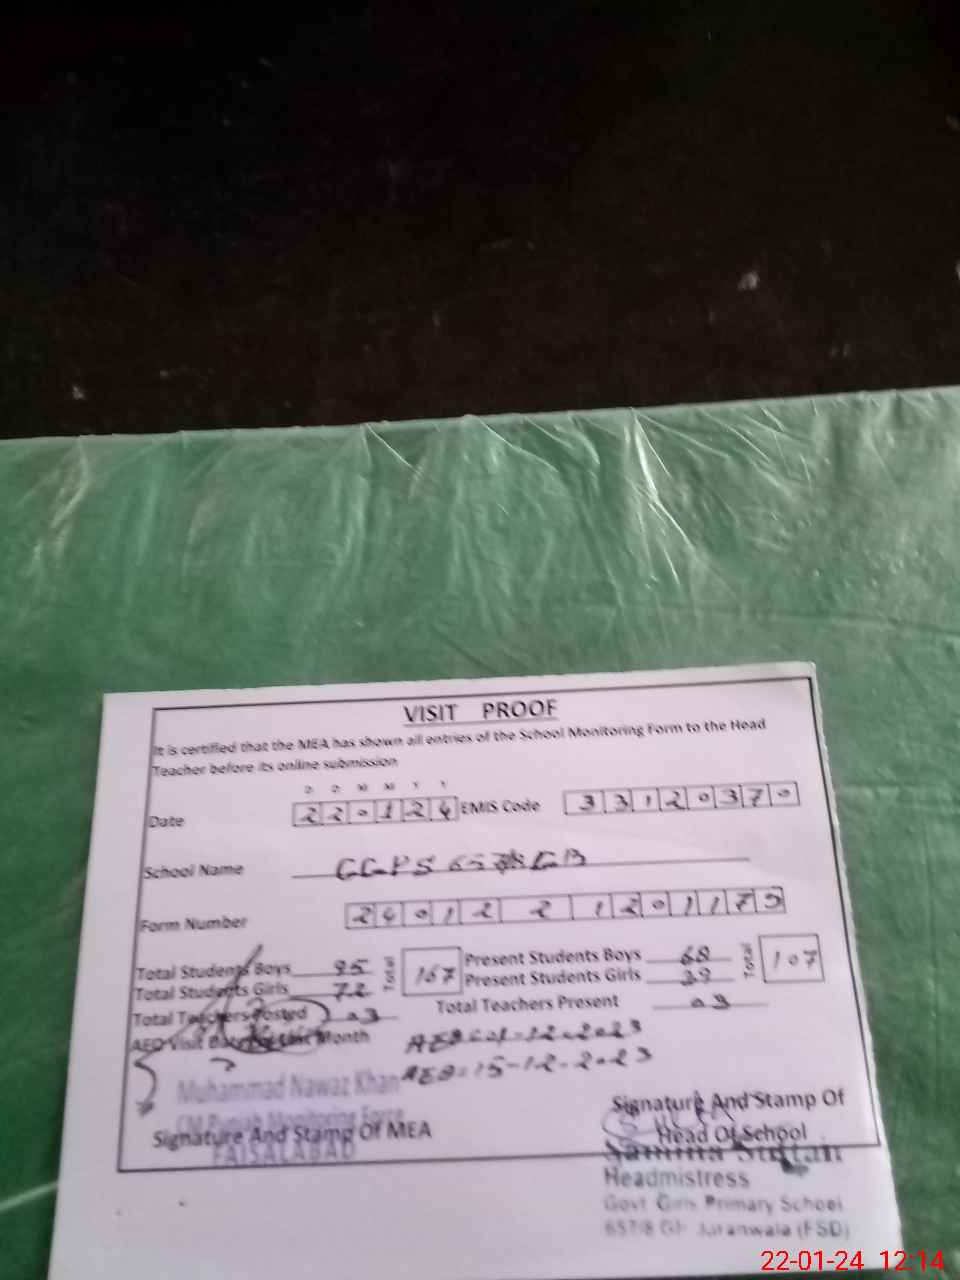 VISIT PROOF
It is certified that the MEA has shown all entries of the School Monitoring Form to the Head
Teacher before its online submission
D D M M Y Y
Date 220124 EMIS Code 33120370
School Name GGPS 657 GB
Form Number 24012 2 1201175
Total Students Boys 95 Total 167 Present Students Boys 68 Total 107
Total Students Girls 72 Present Students Girls 39
Total Teachers Posted 03 Total Teachers Present 03
AEO Visit Date Month 01-12-2023
AEO=15-12-2023
Muhammad Nawaz Khan
CM Punjab Monitoring Force
FAISALABAD
Signature And Stamp Of MEA
Signature And Stamp Of
Head Of School
Samina Sultan
Headmistress
Govt Girls Primary School
657/8 GB Jaranwala (FSD)
22-01-24 12:14